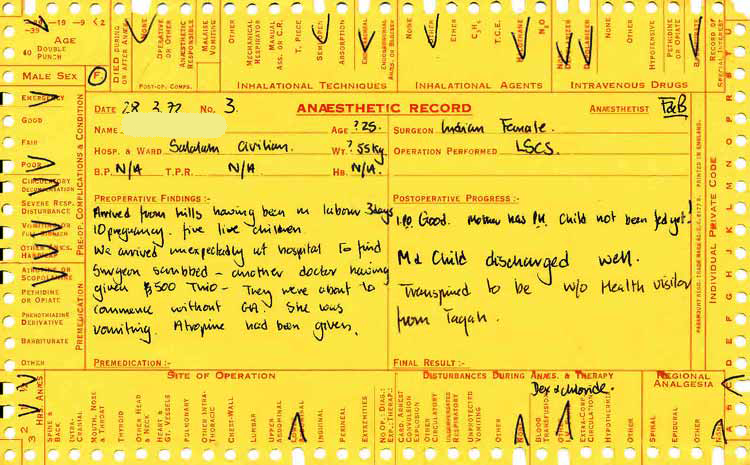 -39 -19 -9 <2
AGE
40 DOUBLE PUNCH
MALE SEX F
DIED DURING OR AFTER ANÆS.
NONE
OPERATIVE OR OTHER
ANÆSTHETIC RESPONSIBLE
MALAISE VOMITING
OTHER
MECHANICAL RESPIRATOR
MANUAL ASS. OR C.R.
T. PIECE
SEMI-OPEN
ABSORPTION
NONE
OTHER
ETHER
C₃H₆
T.C.E.
HALOTHANE
N₂O
NONE
OTHER
HYPOTENSIVE
PETHIDINE OR OPIATE
RECORD OF SPECIAL INTEREST
POST-OP. COMPS.
INHALATIONAL TECHNIQUES
INHALATIONAL AGENTS
INTRAVENOUS DRUGS
EMERGENCY
GOOD
FAIR
POOR
CIRCULATORY
SEVERE RESP. DISTURBANCE
OTHER
ATROPINE OR SCOPOLAMINE
PETHIDINE OR OPIATE
PHENOTHIAZINE DERIVATIVE
BARBITURATE
OTHER
PRE-OP. COMPLICATIONS & CONDITION
PREMEDICATION
DATE 28 2.72 No. 3.
ANÆSTHETIC RECORD
ANÆSTHETIST F&B
NAME
AGE ?25.
SURGEON Indian Female.
HOSP. & WARD Salalah Civilian.
WT. ?55kg.
OPERATION PERFORMED LSCS.
B.P. N/A T.P.R. N/A HB. N/A.
PREOPERATIVE FINDINGS :-
Arrived from hills having been in labour 3days
10 pregnancy. five live children.
We arrived unexpectedly at hospital to find
Surgeon scrubbed - another doctor having
given $500 Thio - They were about to
commence without GA. She was
vomiting. Atropine had been given.
PREMEDICATION :-
POSTOPERATIVE PROGRESS :-
Good. Mother has child not been fed yet!
M & Child discharged well.
Transpired to be w/o Health visitor
from Taqah.
FINAL RESULT :-
INDIVIDUAL PRIVATE CODE
PRINTED IN ENGLAND.
A B C D E F G H I J K L M N O P Q R S T U
HRS ANÆS
3 2
SITE OF OPERATION
SPINE & BACK
INTRA-CRANIAL
MOUTH, NOSE & THROAT
THYROID
OTHER HEAD & NECK
HEART & GT. VESSELS
PULMONARY
OTHER INTRA-THORACIC
CHEST-WALL
LUMBAR
UPPER ABDOMINAL
INGUINAL
PERINEAL
EXTREMITIES
NO OP.: DIAG.: EXP.: THERAP.:
DISTURBANCES DURING ANÆS. & THERAPY
Dex & chloride.
CARD. ARREST CONVULSION EXPLOSION
OTHER CIRCULATORY
UNEXPECTED RESPIRATORY
UNEXPECTED VOMITING
OTHER
BLOOD TRANSFUSION
EXTRA-CORP. CIRCULATION
HYPOTHERMIA
OTHER
REGIONAL ANALGESIA
SPINAL
EPIDURAL
OTHER